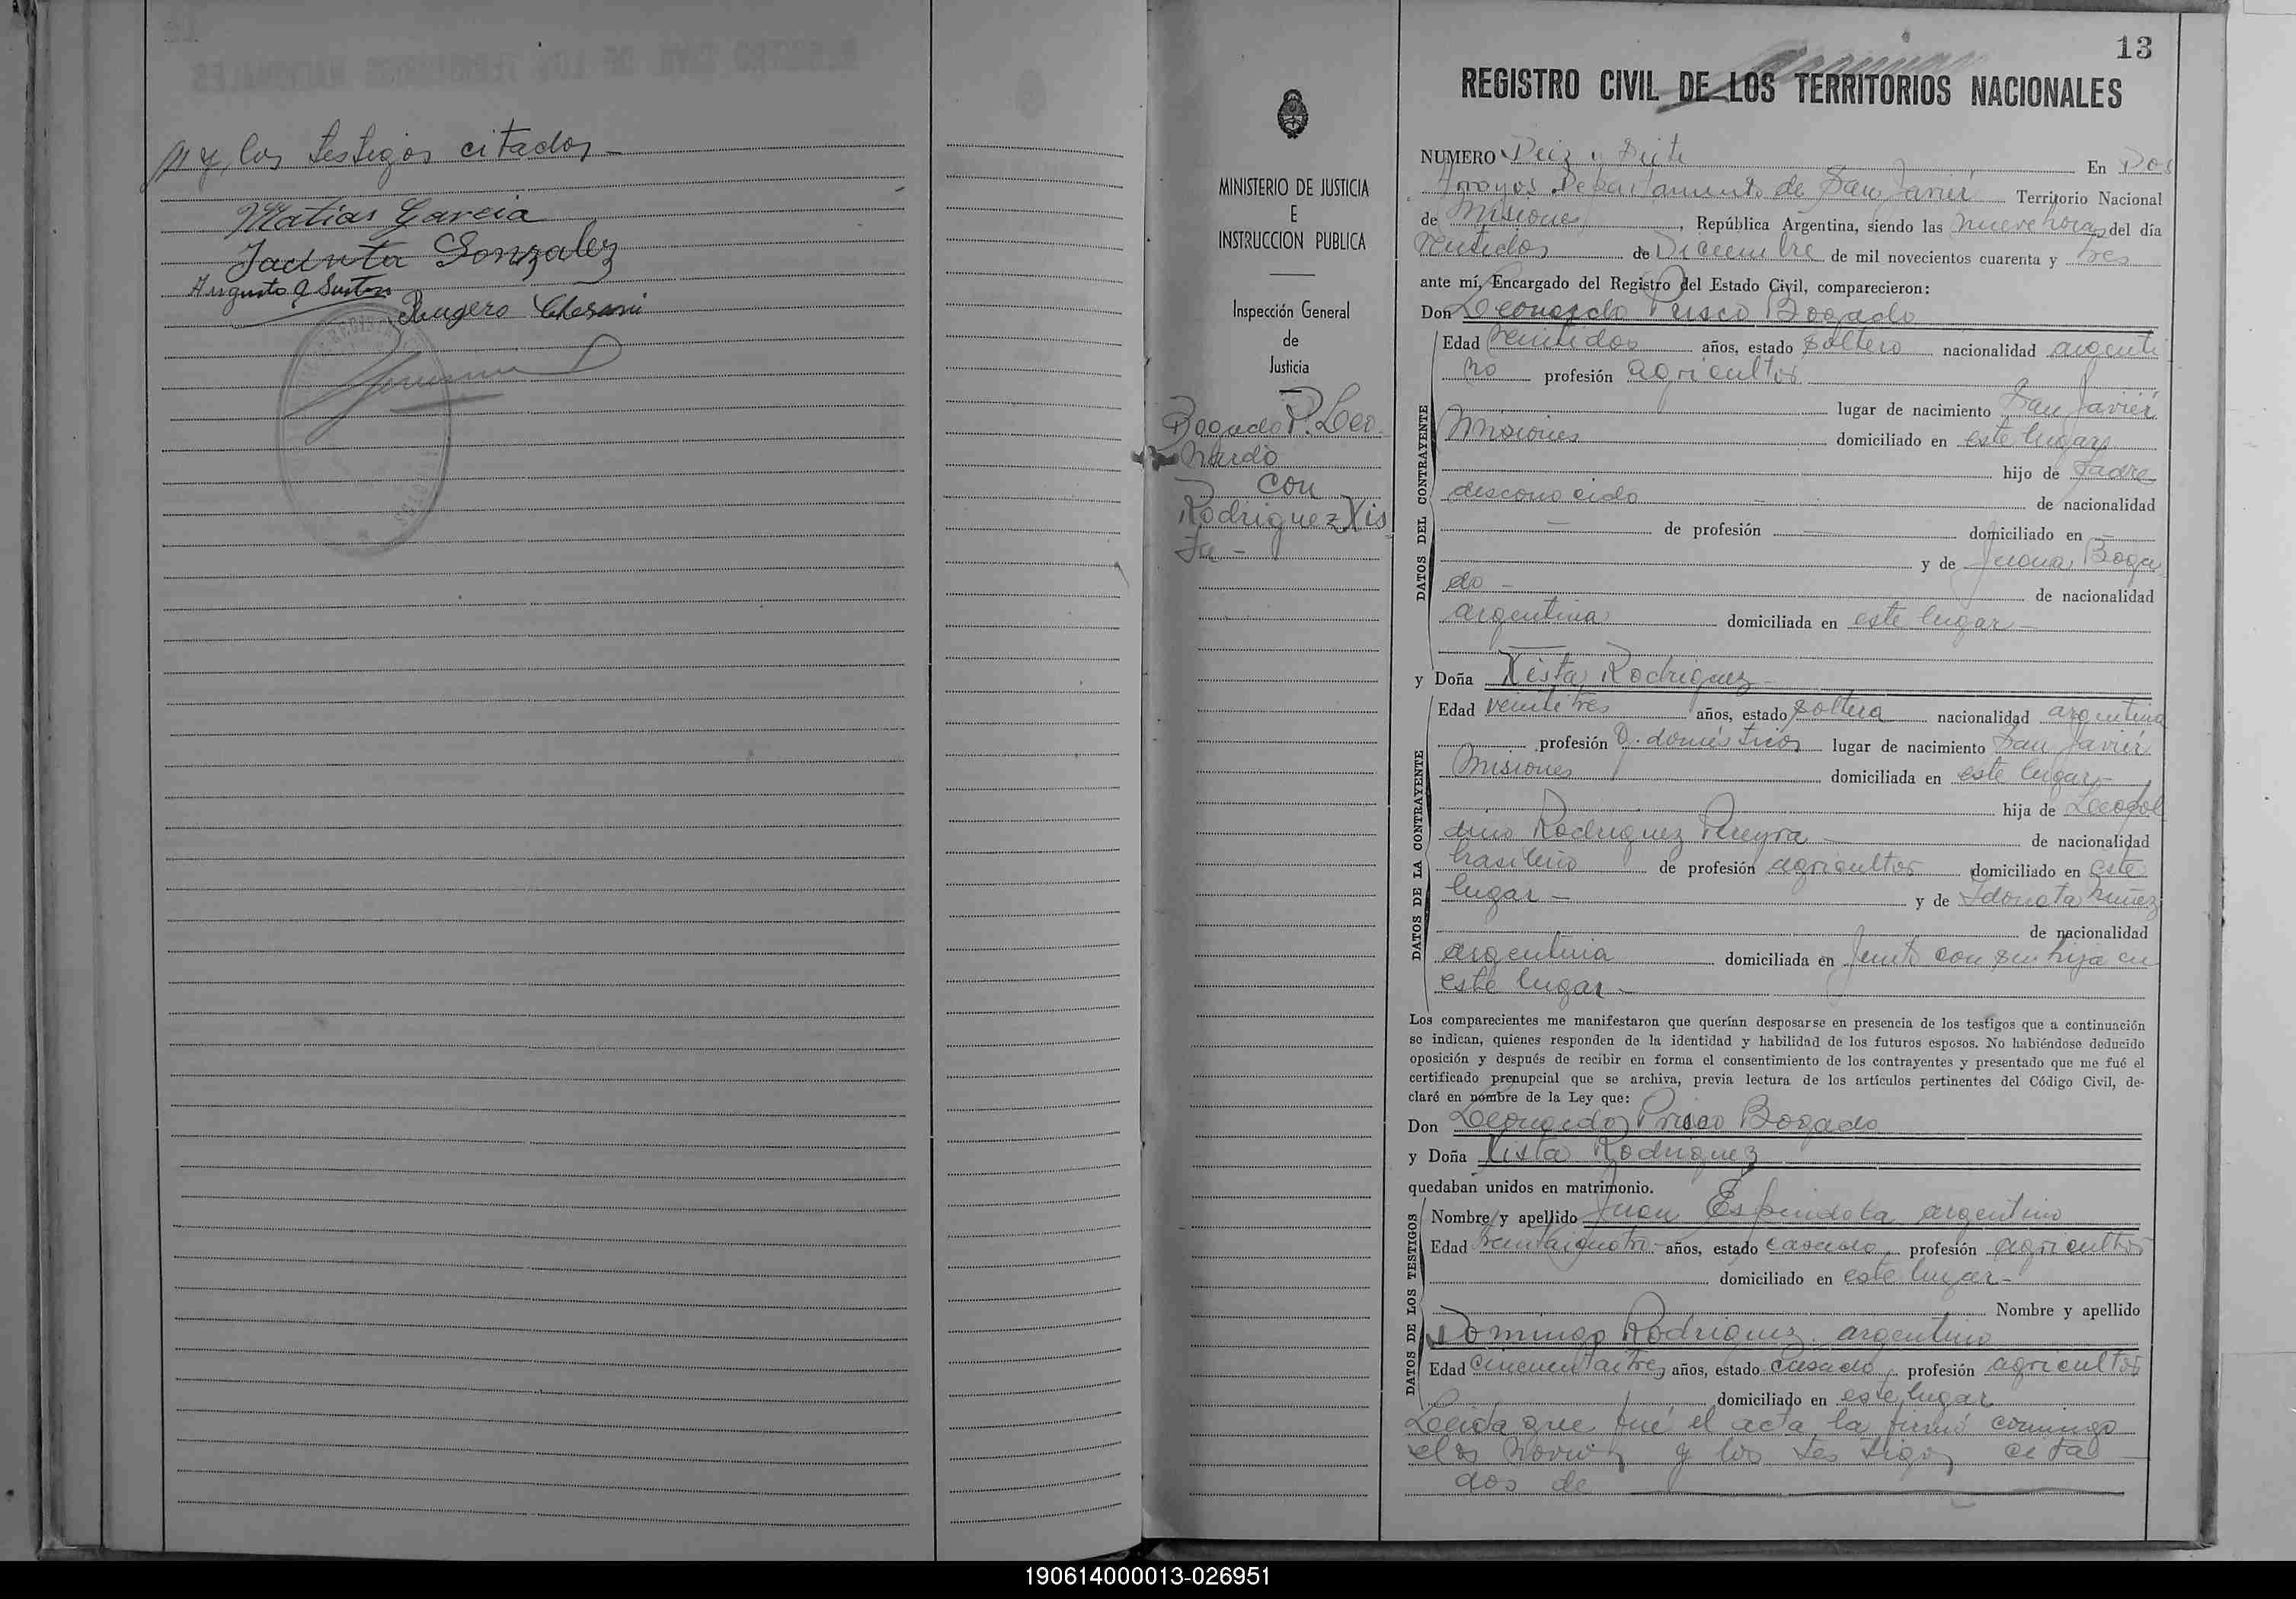 y los testigos citados -
Matias Garcia
Jacinta Gonzalez
Augusto J
Rugero
MINISTERIO DE JUSTICIA
E
INSTRUCCION PUBLICA
Inspección General
de
Justicia
Bogado P. Leo-
nardo
con
Rodriguez Xis
ta -
13
REGISTRO CIVIL DE LOS TERRITORIOS NACIONALES
NUMERO Deiz y Siete En Dos
Arroyos Departamento de San Javier Territorio Nacional
de Misiones, República Argentina, siendo las nueve horas del día
veintidos de Diciembre de mil novecientos cuarenta y tres
ante mí, Encargado del Registro del Estado Civil, comparecieron:
Don Leonardo Prisco Bogado
DATOS DEL CONTRAYENTE
Edad veintidos años, estado soltero nacionalidad argenti
no profesión agricultor
lugar de nacimiento San Javier
Misiones domiciliado en este lugar
hijo de Padre
desconocido de nacionalidad
— de profesión domiciliado en —
y de Juana Boga
do - de nacionalidad
argentina domiciliada en este lugar -
y Doña Xista Rodriguez -
DATOS DE LA CONTRAYENTE
Edad veintitres años, estado soltera nacionalidad argentina
profesión Q. domésticos lugar de nacimiento San Javier
Misiones domiciliada en este lugar -
hija de Leopol
dino Rodriguez Pereyra - de nacionalidad
brasileño de profesión agricultor domiciliado en este
lugar - y de Idonata Nuñez
de nacionalidad
argentina domiciliada en junto con su hija en
este lugar -
Los comparecientes me manifestaron que querían desposarse en presencia de los testigos que a continuación
se indican, quienes responden de la identidad y habilidad de los futuros esposos. No habiéndose deducido
oposición y después de recibir en forma el consentimiento de los contrayentes y presentado que me fué el
certificado prenupcial que se archiva, previa lectura de los artículos pertinentes del Código Civil, de-
claré en nombre de la Ley que:
Don Leonardo Prisco Bogado
y Doña Xista Rodriguez
quedaban unidos en matrimonio.
DATOS DE LOS TESTIGOS
Nombre y apellido Juan Espindola argentino
Edad treintaicuatro años, estado casado profesión agricultor
domiciliado en este lugar -
Nombre y apellido
Domingo Rodriguez. argentino
Edad cincuentaitres años, estado casado, profesión agricultor
domiciliado en este lugar
Leida que fué el acta la firmó conmigo
el novio y los testigos cita
dos de
190614000013-026951